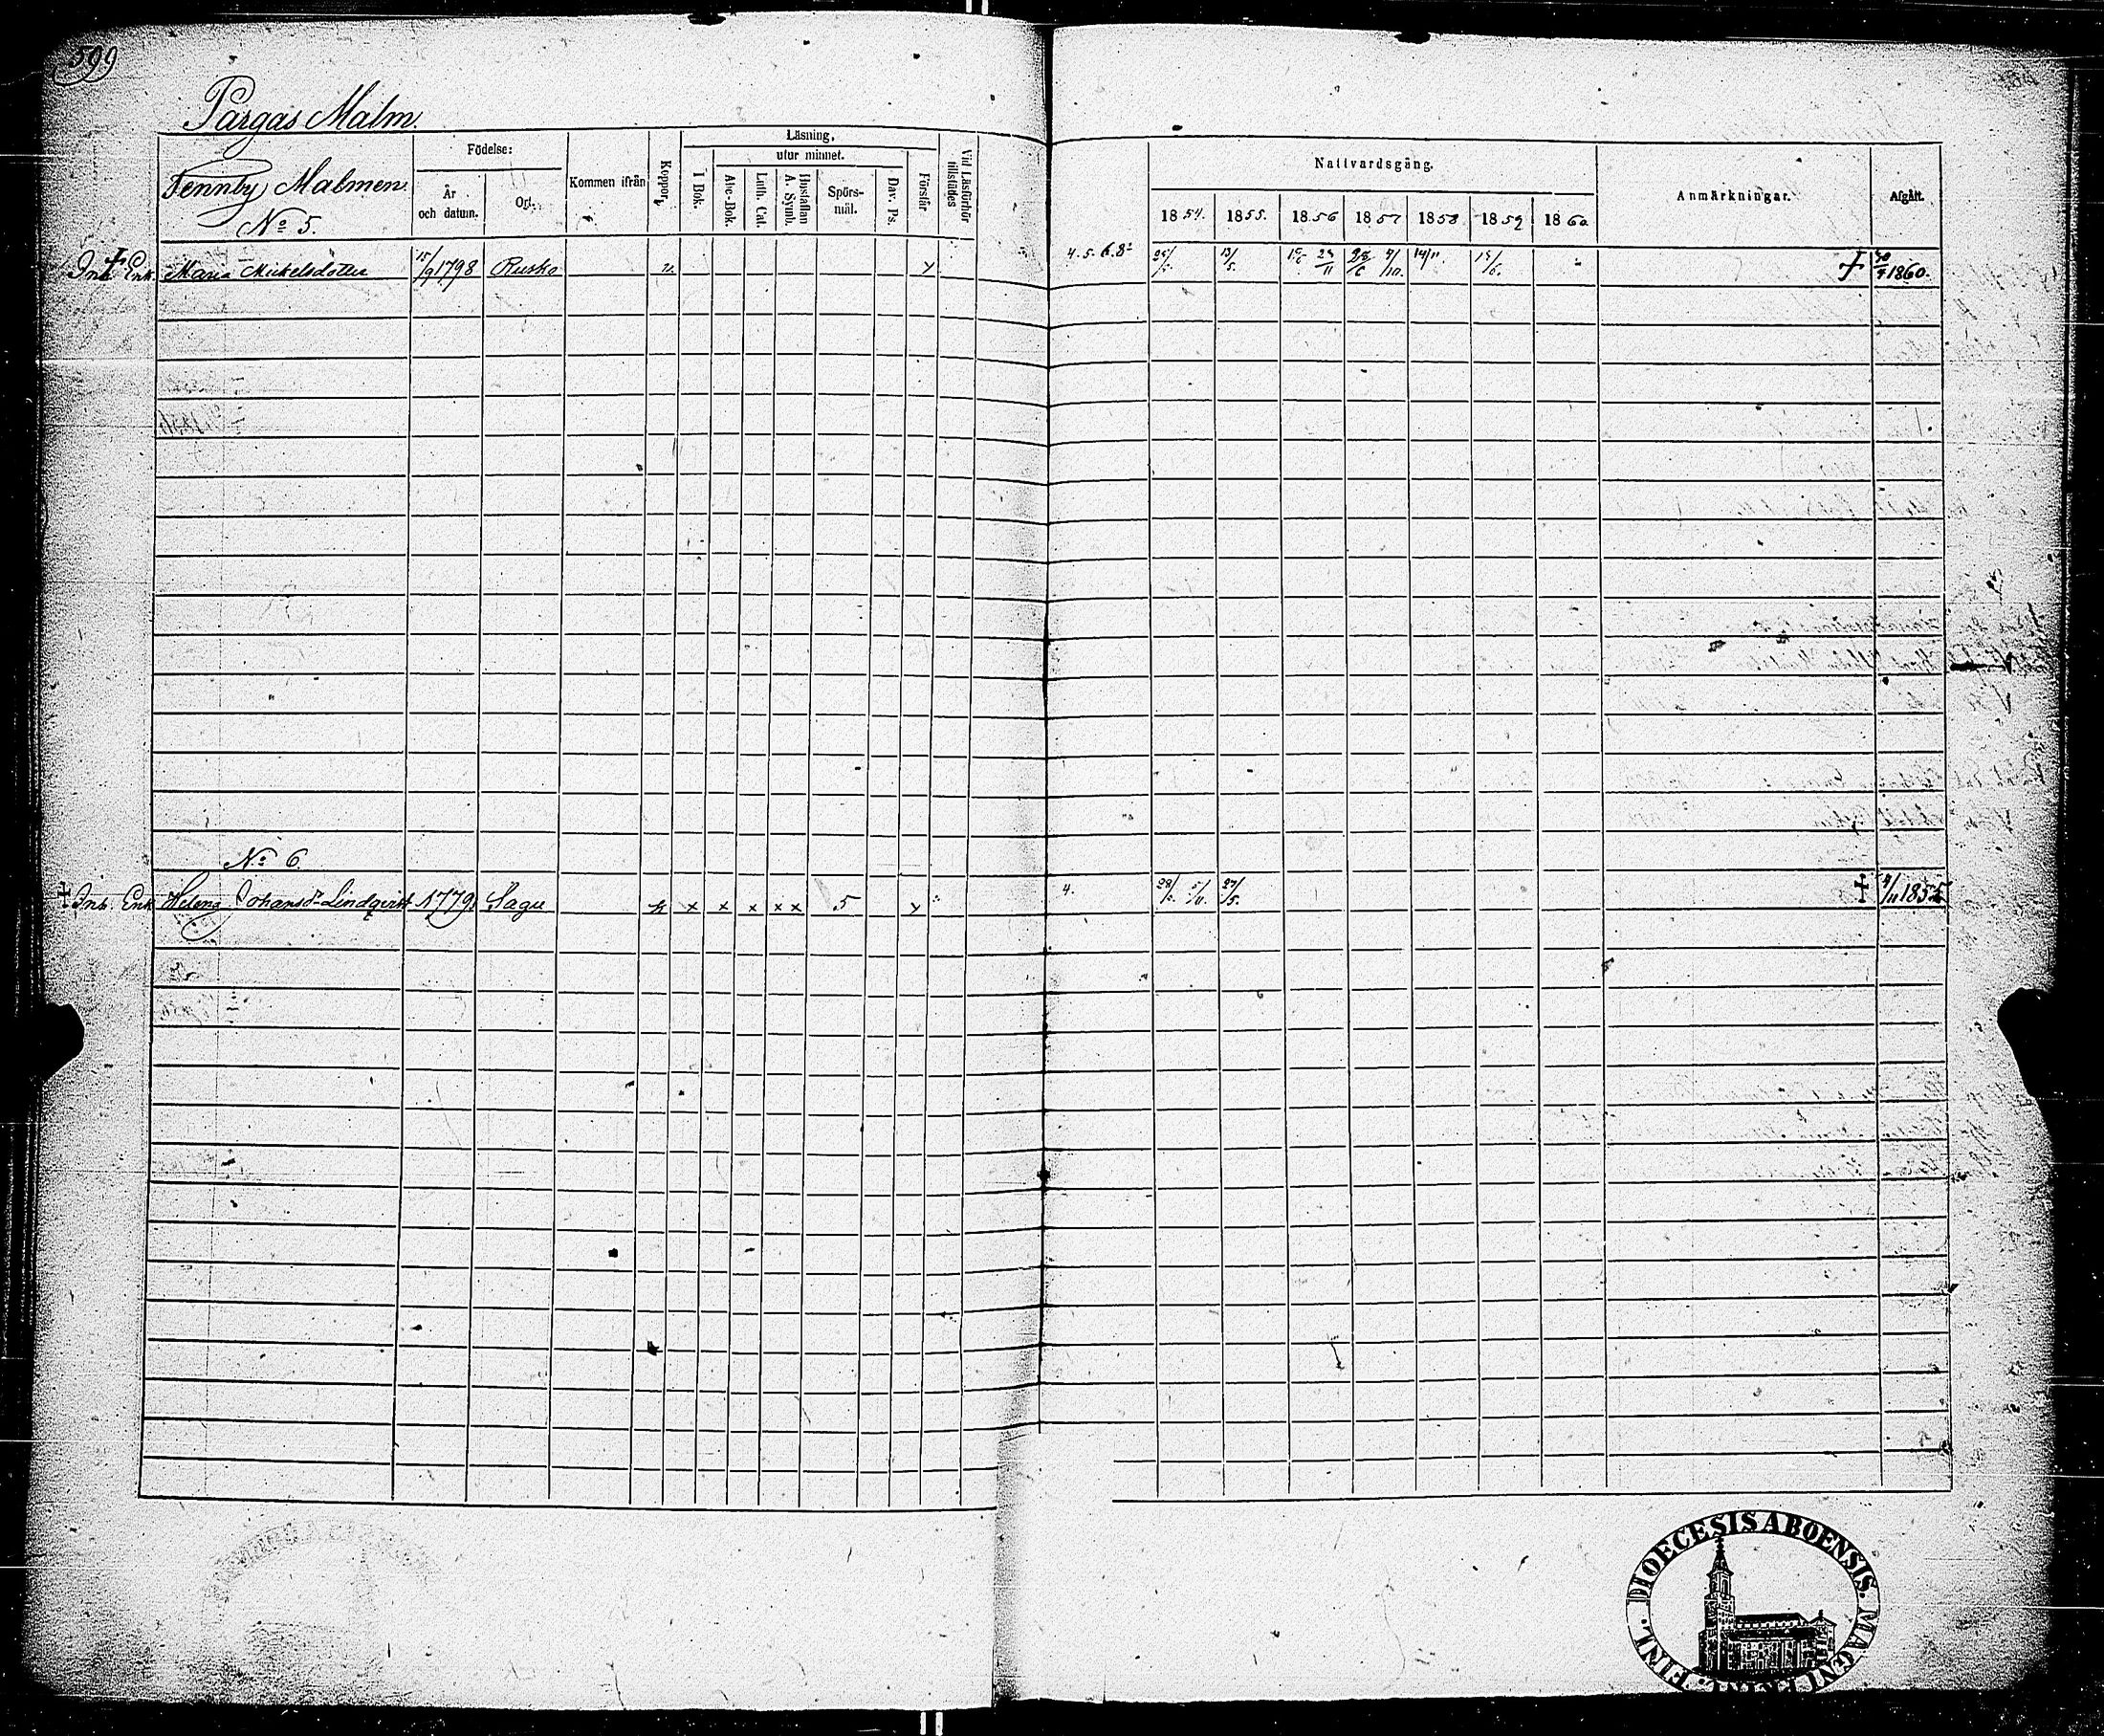 599
Pargas Malm.
Tennby Malmen
No 5.
Födelse:
År och datum.
Ort.
Kommen ifrån
Koppor.
Läsning,
I Bok.
utur minnet.
Abc-Bok.
Luth. Cat.
Hustaflan A. Symb.
Spörsmål.
Dav. Ps.
Förstår
Vid Läsförhör tillstädes
Nattvardsgång.
1854. 1855. 1856 1857 1858 1859 1860.
Anmärkningar.
Afgått.
+ Inh. Enk. Maria Mickelsdotter 15/9 1798 Rusko v. y 4.5.6.8: 13/5. 23/11 28/6 4/10. 14/11. + 1860.
No 6.
+ Inh. Enk. Helena Johansdr Lindqvist 1779. Sagu x x x x x 5 y 4. 28/5. 5/11. 27/5. + 4/11 1855
DIOECESIS ABOENSIS. MAGNI PRINC. FINL.